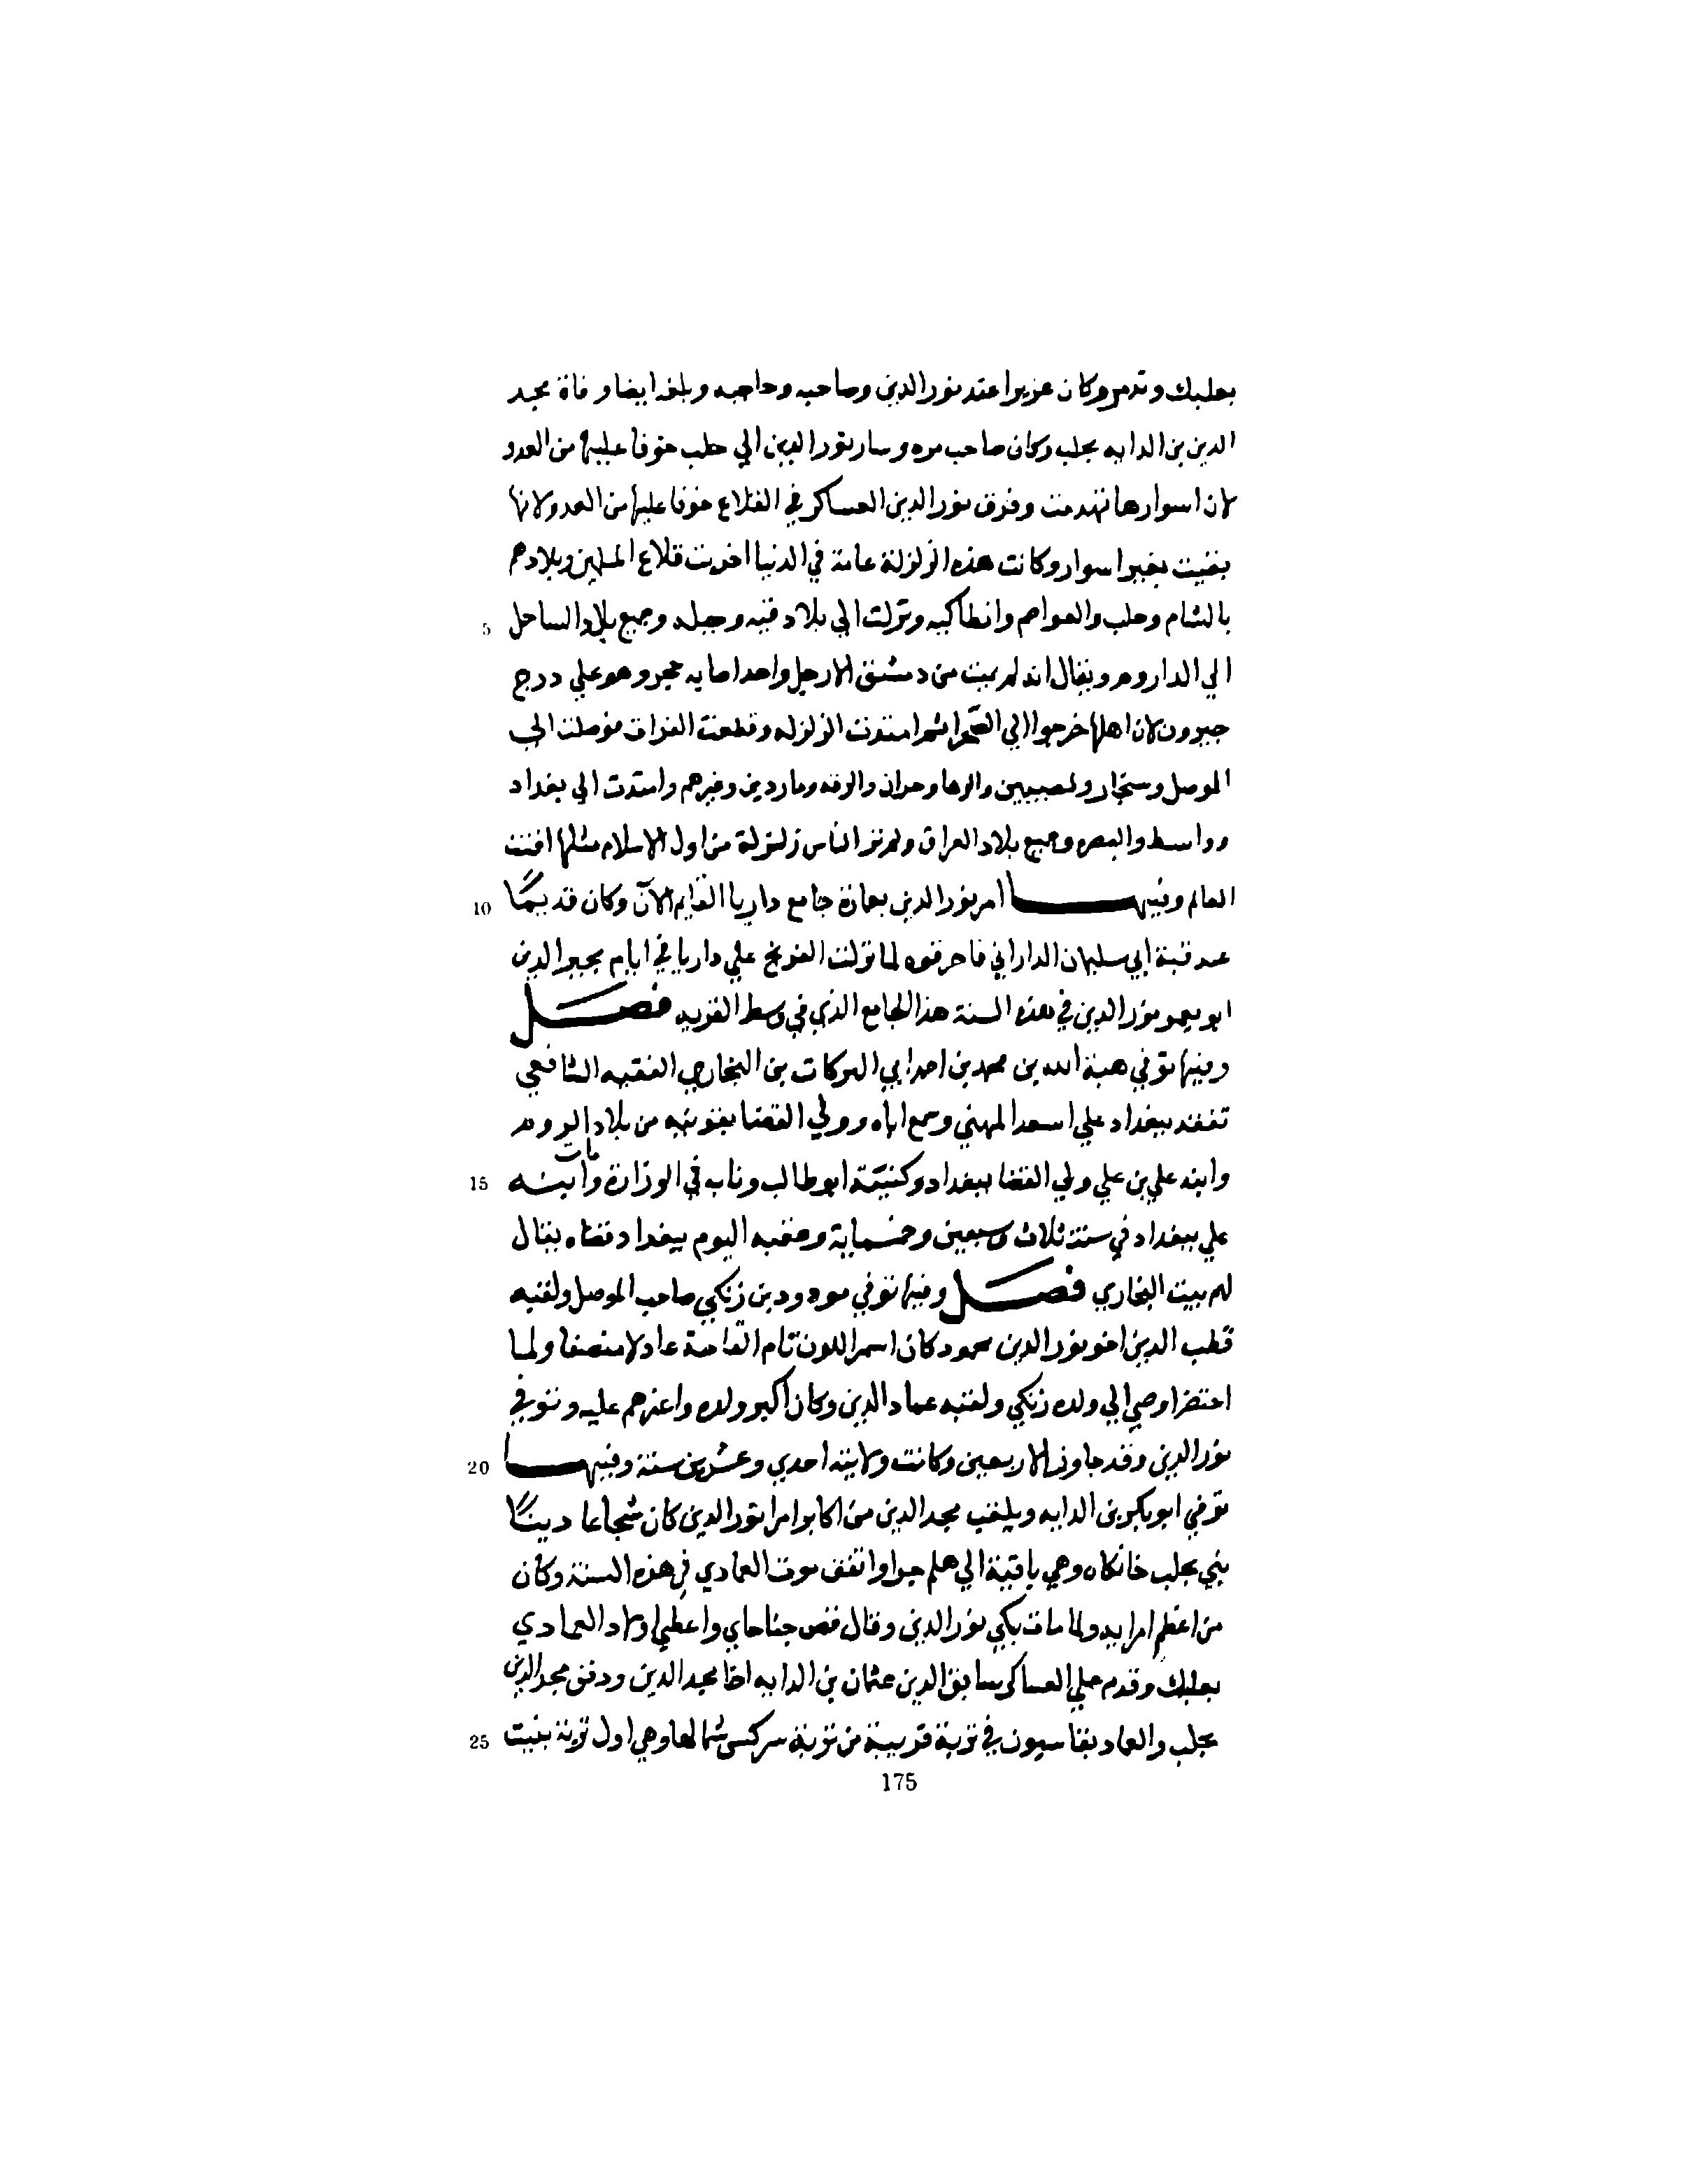 بعلبك وتدمر وكان عزيزا عند نور الدين وصاحبه وحاجبه وبلغه ايضا وفاة مجد
الدين بن الدايه بحلب وكان صاحب مره وسار نور الدين الي حلب خوفا عليها من العدو
لان اسوارها تهدمت وفرق نور الدين العساكر في القلاع خوفا عليها من العدو لانها
بقيت بغير اسوار وكانت هذه الزلزلة عامة في الدنيا اخربت قلاع المسلمين وبلادهم
بالشام وحلب والعواصم وانطاكيه ونزلت الي بلاد قيه وجبله وجميع بلاد الساحل 5
الي الداروم ويقال انه لم يمت من دمشق الا رجل واحد اصابه حجر وهو علي درج
جيرون لان اهلها خرجوا الي الصحرا ثم امتدت الزلزله وقطعت الفرات فوصلت الي
الموصل وسنجار ونصيبين والرها وحران والرقه وماردين وغيرهم وامتدت الي بغداد
وواسط والبصره وجميع بلاد العراق ولم تر الناس زلزلة من اول الاسلام مثلها افنت
العالم وفيها امر نور الدين بعمارة جامع داريا القايم الان وكان قديمًا 10
عند قبة ابي سليمان الداراني فاحرقوه لما نزلت الفرنج علي داريا في ايام مجير الدين
ابو بعمر نور الدين في هذه السنة هذا الجامع الذي في وسط القريه فصل
وفيها توفي هبة الله بن محمد بن احمد ابي البركات بن البخاري الفقيه الشافعي
تفقه ببغداد علي اسعد المهني وسمع اباه وولي القضا بقونيه من بلاد الروم
وابنه علي بن علي ولي القضا ببغداد وكنيته ابو طالب وناب في الوزارة مات وابنه 15
علي ببغداد في سنة ثلاث وسبعين وخمسماية وعقبه اليوم ببغداد قضاه يقال
لهم بيت البخاري فصل وفيها توفي مودود بن زنكي صاحب الموصل ولقبه
قطب الدين اخو نور الدين محمود كان اسمر اللون تام القامة عادلا منصفا ولما
احتضر اوصي الي ولده زنكي ولقبه عماد الدين وكان اكبر ولده واعزهم عليه وتوفي
نور الدين وقد جاوز الاربعين وكانت ولايته احدي وعشرين سنة وفيها 20
توفي ابو بكر بن الدايه ويلقب مجد الدين من اكابر امرا نور الدين كان شجاعا دينًا
بني بحلب خانكاه وهي باقية الي هلم جرا واتفق موت العمادي في هذه السنة وكان
من اعظم امرايه ولما مات بكي نور الدين وقال قص جناحاي واعطي اولاد العمادي
بعلبك وقدم علي العساكر سابق الدين عثمان بن الدايه اخا مجد الدين ودفن مجد الدين
بحلب والعماد بقاسيون في تربة قريبة من تربة سركس شمالها وهي اول تربة بنيت 25
175